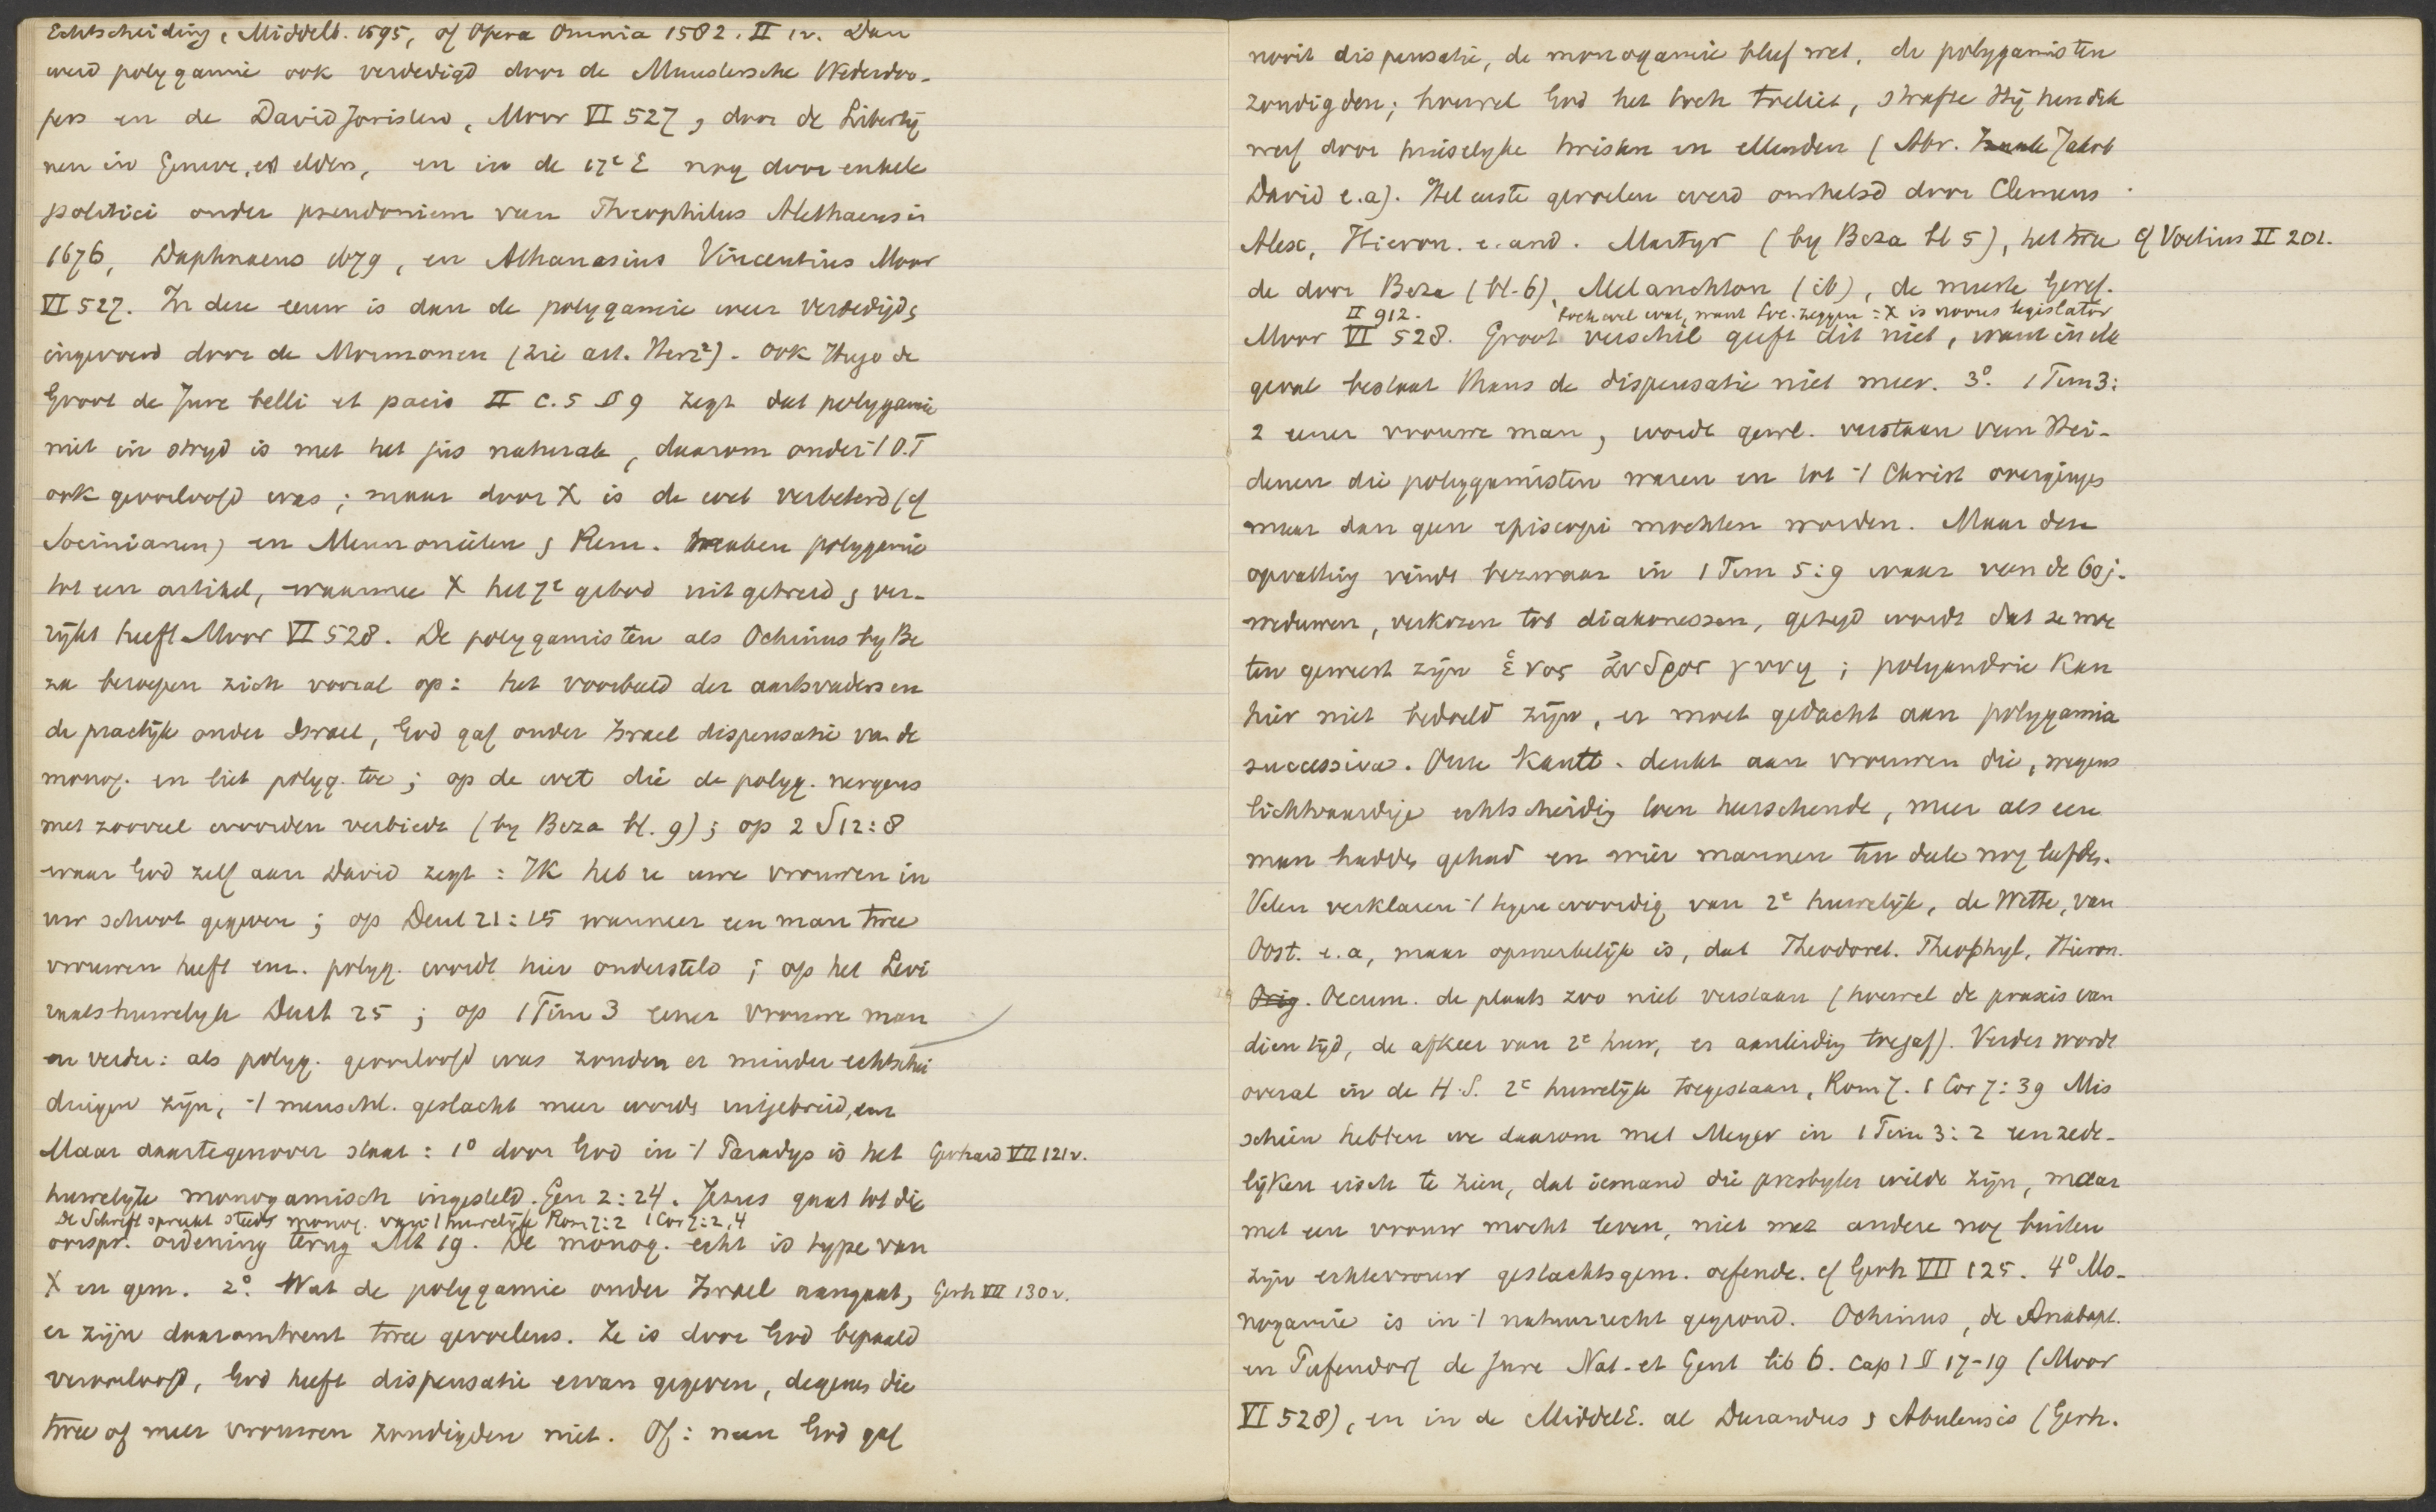 Echtscheiding, Middelb. 1595, of Opera Omnia 1582. II 1v. Dan
werd polygamie ook verdedigd door de Munstersche Wederdoo-
pers en de David Joristen, Moor VI 527, door de Libertij
nen in Geneve, en elders, en in de 17e E nog door enkele
politici onder pseudoniem van Theophilus Alethaeus in
1676, Daphnaeus 1679, en Athanasius Vincentius Moor
VI 527. In deze eeuw is dan de polygamie weer verdedigd &
ingevoerd door de Mormonen (zie art. Herz²). Ook Hugo de
Groot de Jure belli et pacis II c. 5 § 9 zegt dat polygamie
niet in stryd is met het jus naturale, daarom onder 't O.T
ook geoorloofd was; maar door X is de wet verbeterd (cf
Socinianen) en Mennonieten & Rem. maken polygamie
tot een artikel, waarmee X het 7e gebod uitgebreid & ver-
rijkt heeft Moor VI 528. De polygamisten als Ochinus by Be
za beroepen zich vooral op: het voorbeeld der aartsvaders en
de practijk onder Israel, God gaf onder Israel dispensatie van de
monog. en liet polyg. toe; op de wet die de polyg. nergens
met zooveel woorden verbiedt (by Beza bl. 9); op 2 S 12:8
waar God zelf aan David zegt: Ik heb u uwe vrouwen in
uw schoot gegeven; op Deut 21:15 wanneer een man twee
vrouwen heeft enz. polyg. wordt hier ondersteld; op het Levi
raatshuwelyk Deut 25; op 1 Tim 3 eener vrouwe man
en verder: als polyg. geoorloofd was zouden er minder echtschei
dingen zijn, 't menschl. geslacht meer worde uitgebreid, enz
Maar daartegenover staat: 1° door God in 't Paradys is het Gerhard VII 121v.
huwelyk monogamisch ingesteld. Gen 2:24. Jezus gaat tot die
De Schrift spreekt steeds monog. van 't huwelijk Rom 7:2 1 Cor 7:2,4
oorspr. ordening terug Mt 19. De monog. echt is type van
X en gem. 2°. Wat de polygamie onder Israel aangaat, Gerh VII 130v.
er zijn daaromtrent twee gevoelens. Ze is door God bepaald
veroorloofd, God heeft dispensatie ervan gegeven, degenen die
twee of meer vrouwen zondigden niet. Of: neen God gaf
nooit dispensatie, de monogamie bleef wet, de polygamisten
zondigden; hoewel God het toch toeliet, strafte Hij hen dik
werf door huiselyke twisten en ellenden (Abr. Jakob
David e.a). Het eerste gevoelen werd omhelsd door Clemens
Alex, Hieron. e. and. Martyr (by Beza bl 5), het twe cf Voetius II 201.
de door Beza (bl. 6), Melanchton (ib), de meeste Geref.
II 912. toch wel wat, want Soc. zeggen: X is novus legislator
Moor VI 528. Groot verschil geeft dit niet, want in elk
geval bestaat thans de dispensatie niet meer. 3°. 1 Tim 3:
2 eener vrouwe man, wordt gewl. verstaan van Hei-
denen die polygamisten waren en tot 't Christ overgingen
maar dan geen episcopi mochten worden. Maar deze
opvatting vindt bezwaar in 1 Tim 5:9 waar van de 60 j.
weduwen, verkozen tot diakonessen, gezegd wordt dat ze moe
ten geweest zijn ἑνος ἀνδρος γυνη; polyandrie kan
hier niet bedoeld zijn, er moet gedacht aan polygamia
successiva. Onze Kantt. denkt aan vrouwen die, wegens
lichtvaardige echtscheidig toen heerschende, meer als eene
man hadden gehad en wier mannen ten deele nog leefden.
Velen verklaren 't tegenwoordig van 2e huwelijk, de Wette, van
Oost. e. a, maar opmerkelijk is, dat Theodoret. Theophyl, Hieron.
Orig. Oecum. de plaats zoo niet verstaan (hoewel de praxis van
dien tijd, de afkeer van 2e huw, er aanleidig toe gaf). Verder wordt
overal in de H.S. 2e huwelijk toegestaan, Rom 7. 1 Cor 7:39 Mis
schien hebben we daarom met Meyer in 1 Tim 3:2 een zede-
lijken eisch te zien, dat iemand die presbyter wilde zijn, maar
met een vrouw mocht leven, niet met andere nog buiten
zijn echtevrouw geslachtsgem. oefende. cf Gerh VII 125. 4° Mo-
nogamie is in 't natuurrecht gegrond. Ochinus, de Anabapt.
en Pufendorf de Jure Nat. et Gent lib 6. cap 1 § 17-19 (Moor
VI 528), en in de MiddelE. al Durandus & Abulensis (Gerh.